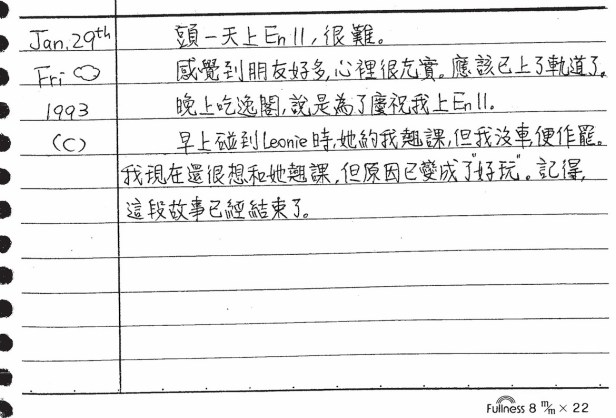 Jan. 29th 頭一天上En 11,很難。
Fri 感覺到朋友好多,心裡很充實。應該已上了軌道了。
1993 晚上吃逸園,說是為了慶祝我上En 11.
(C) 早上碰到Leonie時,她約我翹課,但我沒車便作罷。
我現在還很想和她翹課,但原因已變成了"好玩"。記得,
這段故事已經結束了。
Fullness 8 m/m × 22